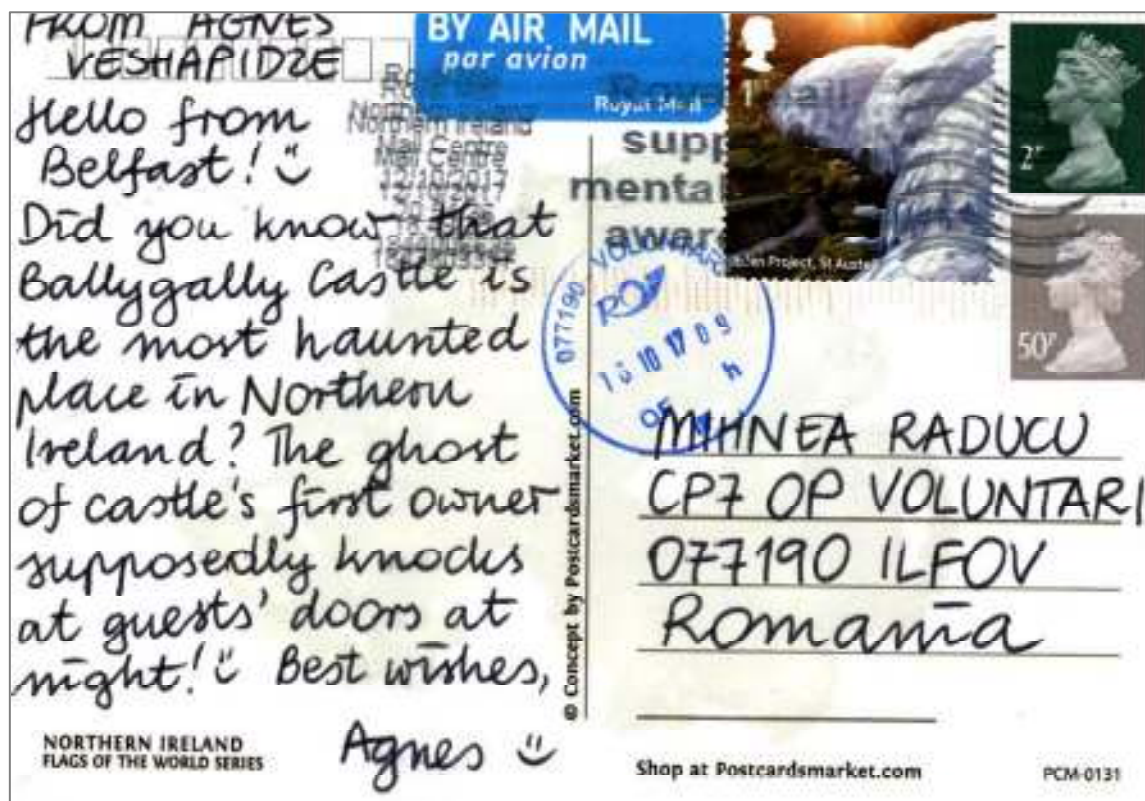 FROM AGNES
VESHAPIDZE
Hello from
Belfast!
Did you know that
Ballygally Castle is
the most haunted
place in Northern
Ireland? The ghost
of castle's first owner
supposedly knocks
at guests' doors at
night! Best wishes,
Agnes
NORTHERN IRELAND
FLAGS OF THE WORLD SERIES
BY AIR MAIL
par avion
Royal Mail
Northern Ireland
Mail Centre
12/10/2017
Royal Mail
supp
mental
aware
Project, St Auste
2P
50P
077190 VOLUNTARI
10 17 09
h
© Concept by Postcardsmarket.com
MIHNEA RADUCU
CP7 OP VOLUNTARI
077190 ILFOV
Romania
Shop at Postcardsmarket.com
PCM-0131